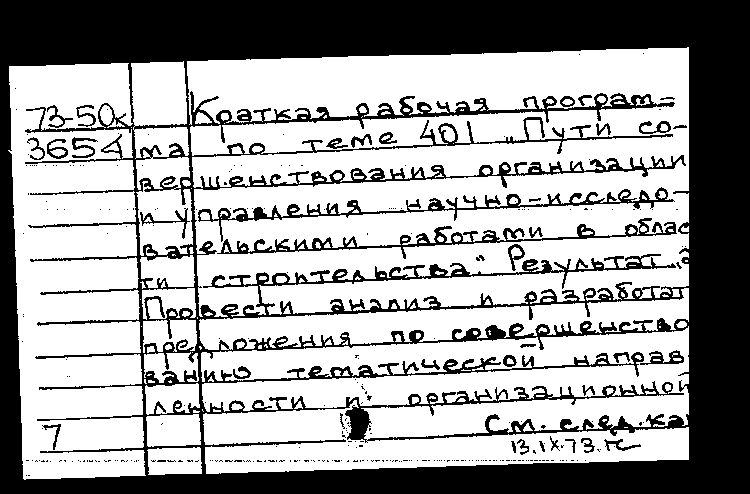 73-50к Краткая рабочая програм-
3654 ма по теме 401 „Пути со-
вершенствования организации
и управления научно-исследо-
вательскими работами в облас
ти строительства." Результат
Провести анализ и разработат
предложения по совершенство
ванию тематической направ
ленности и организационной
7 См. след. ка
13.IX.73.